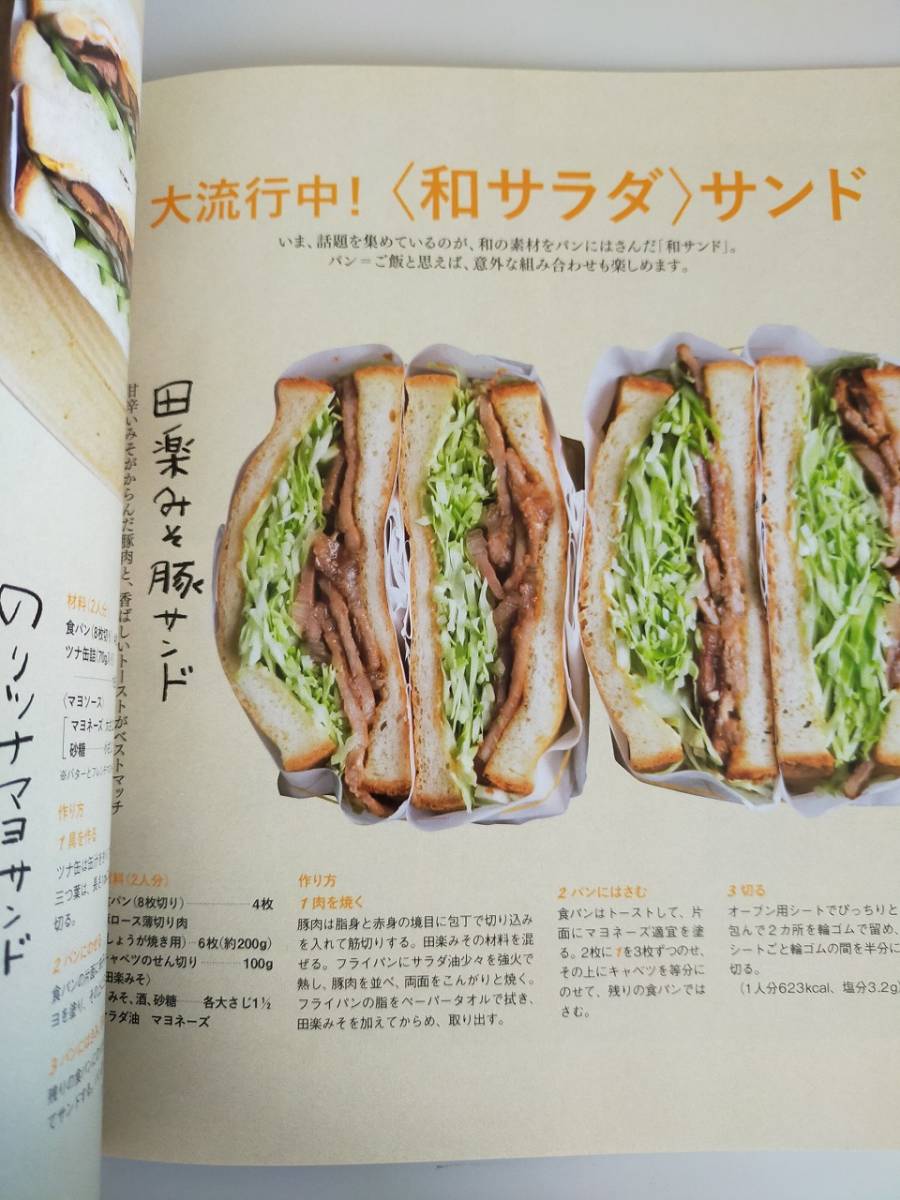 大流行中!〈和サラダ〉サンド
いま、話題を集めているのが、和の素材をパンにはさんだ「和サンド」。
パン=ご飯と思えば、意外な組み合わせも楽しめます。
田楽みそ豚サンド
甘辛いみそがからんだ豚肉と、香ばしいトーストがベストマッチ
料(2人分)
パン(8枚切り) 4枚
ロース薄切り肉
しょうが焼き用) 6枚(約200g)
ャベツのせん切り 100g
田楽みそ〉
みそ、酒、砂糖 各大さじ1½
ラダ油 マヨネーズ
作り方
1 肉を焼く
豚肉は脂身と赤身の境目に包丁で切り込み
を入れて筋切りする。田楽みその材料を混
ぜる。フライパンにサラダ油少々を強火で
熱し、豚肉を並べ、両面をこんがりと焼く。
フライパンの脂をペーパータオルで拭き、
田楽みそを加えてからめ、取り出す。
2 パンにはさむ
食パンはトーストして、片
面にマヨネーズ適宜を塗
る。2枚に1を3枚ずつのせ、
その上にキャベツを等分に
のせて、残りの食パンでは
さむ。
3 切る
オーブン用シートでぴっちりと
包んで2カ所を輪ゴムで留め、
シートごと輪ゴムの間を半分に
切る。
(1人分623kcal、塩分3.2g)
のりツナマヨサンド
材料(2人分
食パン(8枚切り)
ツナ缶詰(70g)
〈マヨソース〉
マヨネーズ
砂糖
作り方
1 具を作る
ツナ缶は缶汁を
三つ葉は、長さ
切る。
2 パンにのせる
食パンの片面に
ヨを塗り、その
3 パンにはさ
残りの食パンに
てサンドする。